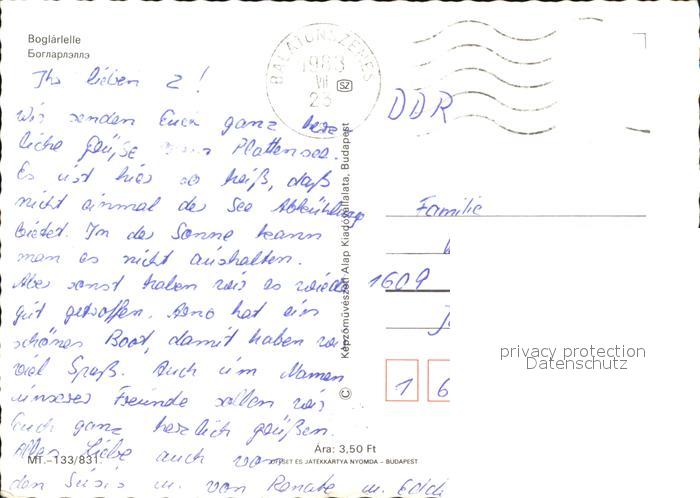 Boglárlelle
Богларлэллэ
Ihr lieben 2!
Wir senden Euch ganz herz-
liche Grüße vom Plattensee.
Es ist hier so heiß, daß
nicht einmal der See Abkühlung
bietet. In der Sonne kann
man es nicht aushalten.
Aber sonst haben wir es wieder
gut getroffen. Arno hat ein
schönes Boot, damit haben wir
viel Spaß. Auch im Namen
unserer Freunde sollen wir
Euch ganz herzlich grüßen.
Alles Liebe auch von
den Süßis u. von Renate u. Eddi
MT.–133/831.
BALATONSZEMES
1983
VII
23
SZ
© Képzőművészeti Alap Kiadóvállalata, Budapest
DDR
Familie
1609
privacy protection
Datenschutz
1 6
Ára: 3,50 Ft
OFFSET ÉS JÁTÉKKÁRTYA NYOMDA – BUDAPEST